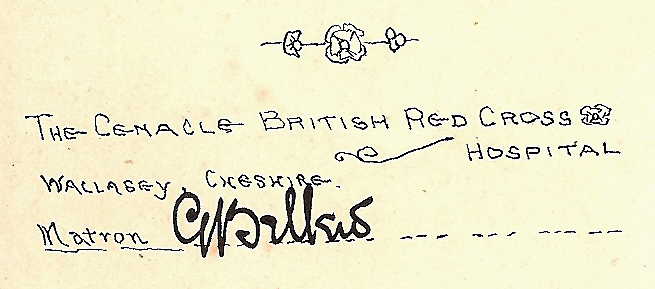 THE CENACLE BRITISH RED CROSS
HOSPITAL
WALLASEY, CHESHIRE.
Matron